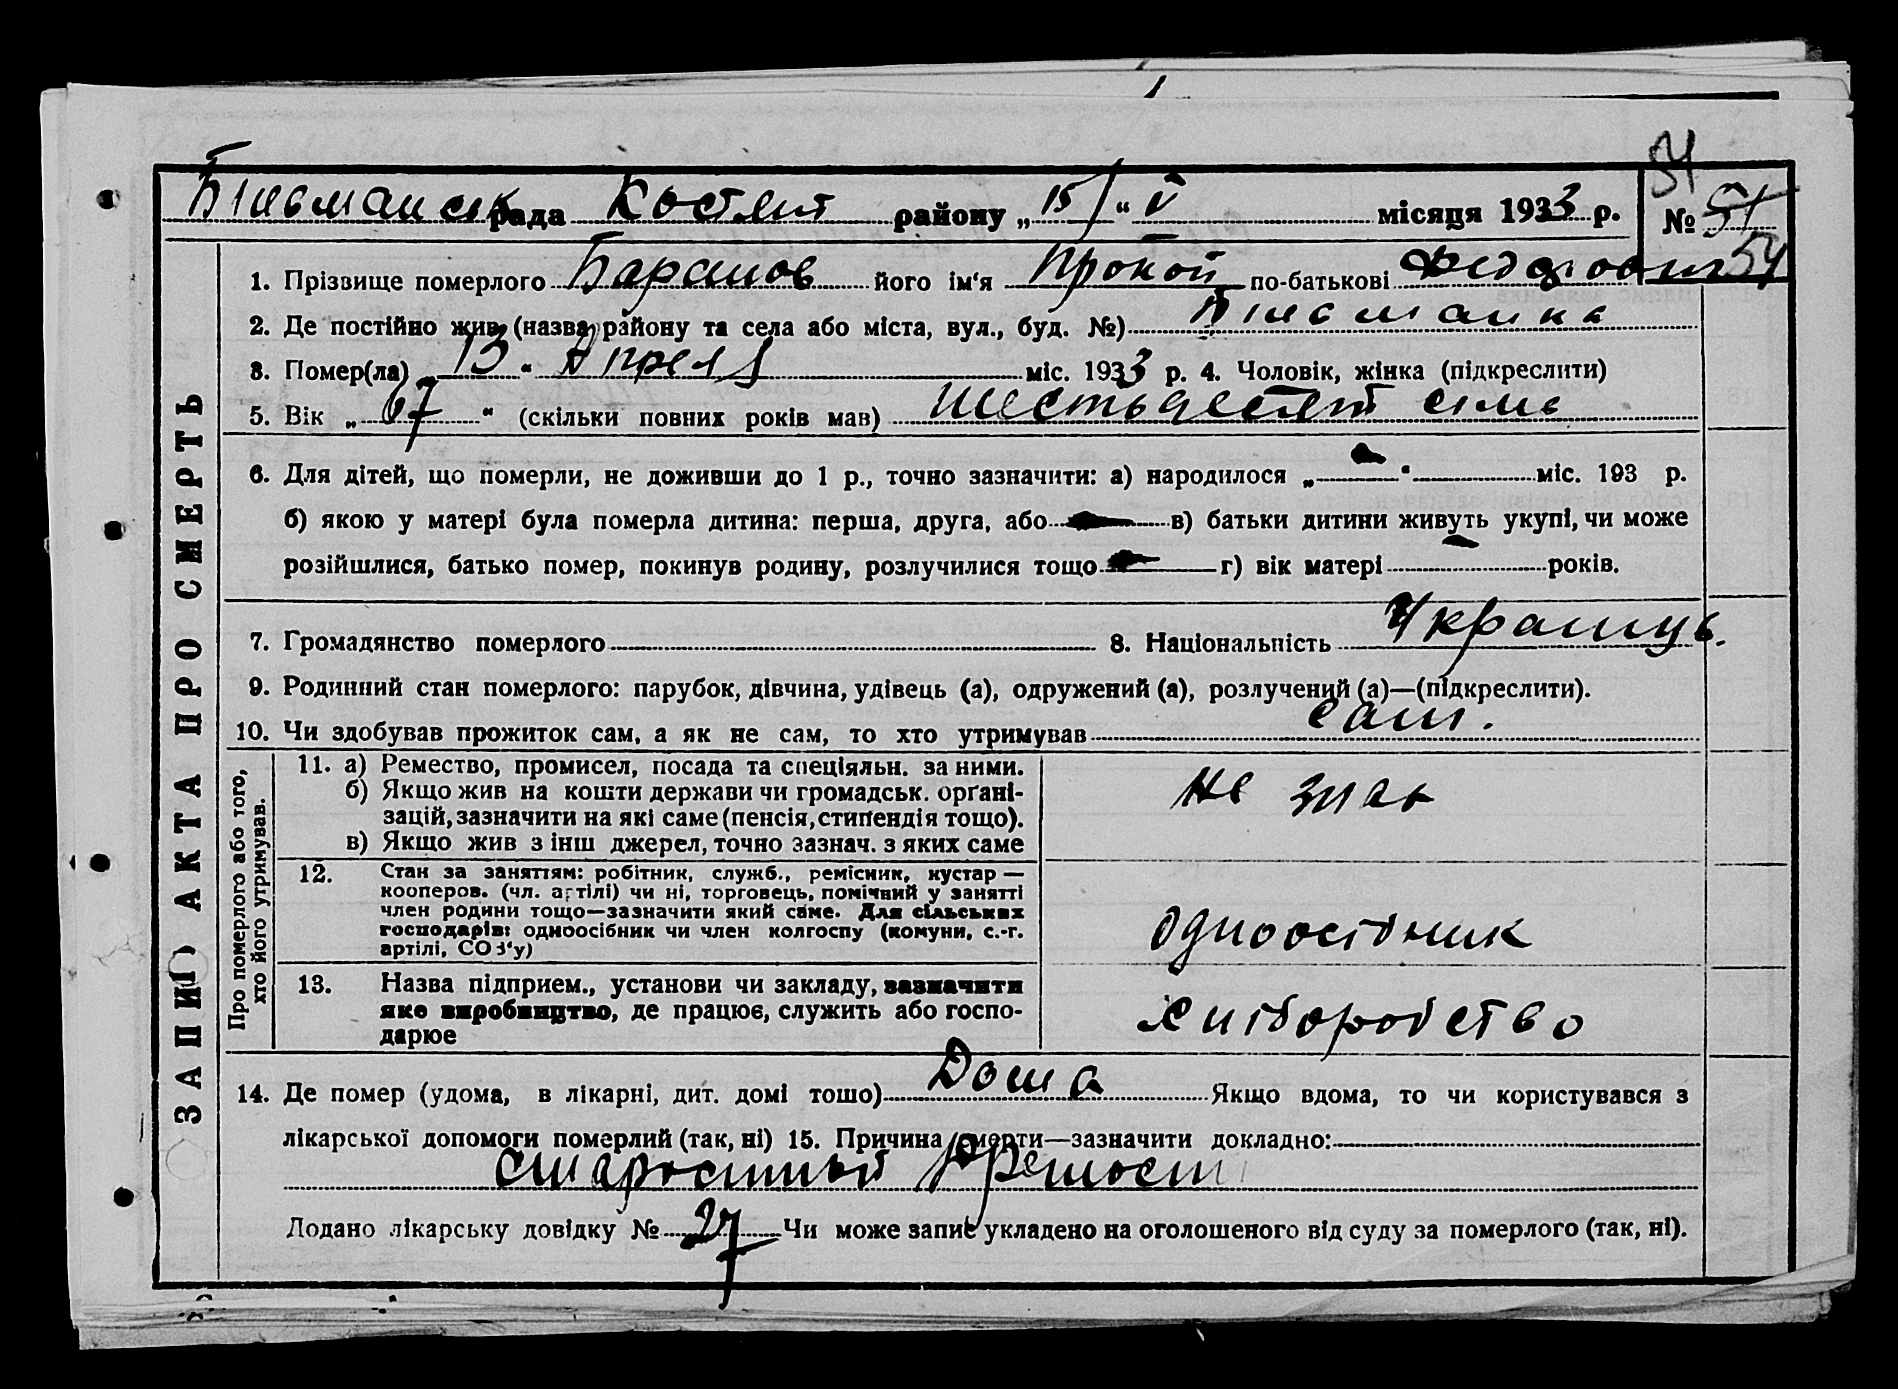 Більманськ рада Костянт району „ 15 “ V місяця 1933 р. № 51
54
54
ЗАПИС АКТА ПРО СМЕРТЬ
1. Прізвище померлого Баранов його ім‘я Прокоп по-батькові Федорович
2. Де постійно жив (назва району та села або міста, вул., буд. №) Більманка
3. Помер(ла) „ 13 “ Апреля міс. 1933 р. 4. Чоловік, жінка (підкреслити)
5. Вік „ 67 “ (скільки повних років мав) шестьдесят сімь
6. Для дітей, що померли, не доживши до 1 р., точно зазначити: а) народилося „ “ міс. 193 р.
б) якою у матері була померла дитина: перша, друга, або в) батьки дитини живуть укупі, чи може
розійшлися, батько помер, покинув родину, розлучилися тощо г) вік матері років.
7. Громадянство померлого 8. Національність Украинць.
9. Родинний стан померлого: парубок, дівчина, удівець (а), одружений (а), розлучений (а)—(підкреслити).
10. Чи здобував прожиток сам, а як не сам, то хто утримував сам.
Про померлого або того, хто його утримував.
11. а) Ремество, промисел, посада та спеціяльн. за ними.
б) Якщо жив на кошти держави чи громадськ. орґані-
зацій, зазначити на які саме (пенсія, стипендія тощо).
в) Якщо жив з інш джерел, точно зазнач. з яких саме
не знає
12. Стан за заняттям: робітник, служб., ремісник, кустар —
кооперов. (чл. артілі) чи ні, торговець, помічний у занятті
член родини тощо—зазначити який саме. Для сільських
господарів: одноосібник чи член колгоспу (комуни, с.-г.
артілі, СОЗ‘у)
одноосібник
13. Назва підприєм., установи чи закладу, зазначити
яке виробництво, де працює, служить або госпо-
дарює
хліборобство
14. Де помер (удома, в лікарні, дит. домі тощо) Дома Якщо вдома, то чи користувався з
лікарської допомоги померлий (так, ні) 15. Причина смерти—зазначити докладно:
старостный
Додано лікарську довідку № 27 Чи може запис укладено на оголошеного від суду за померлого (так, ні).